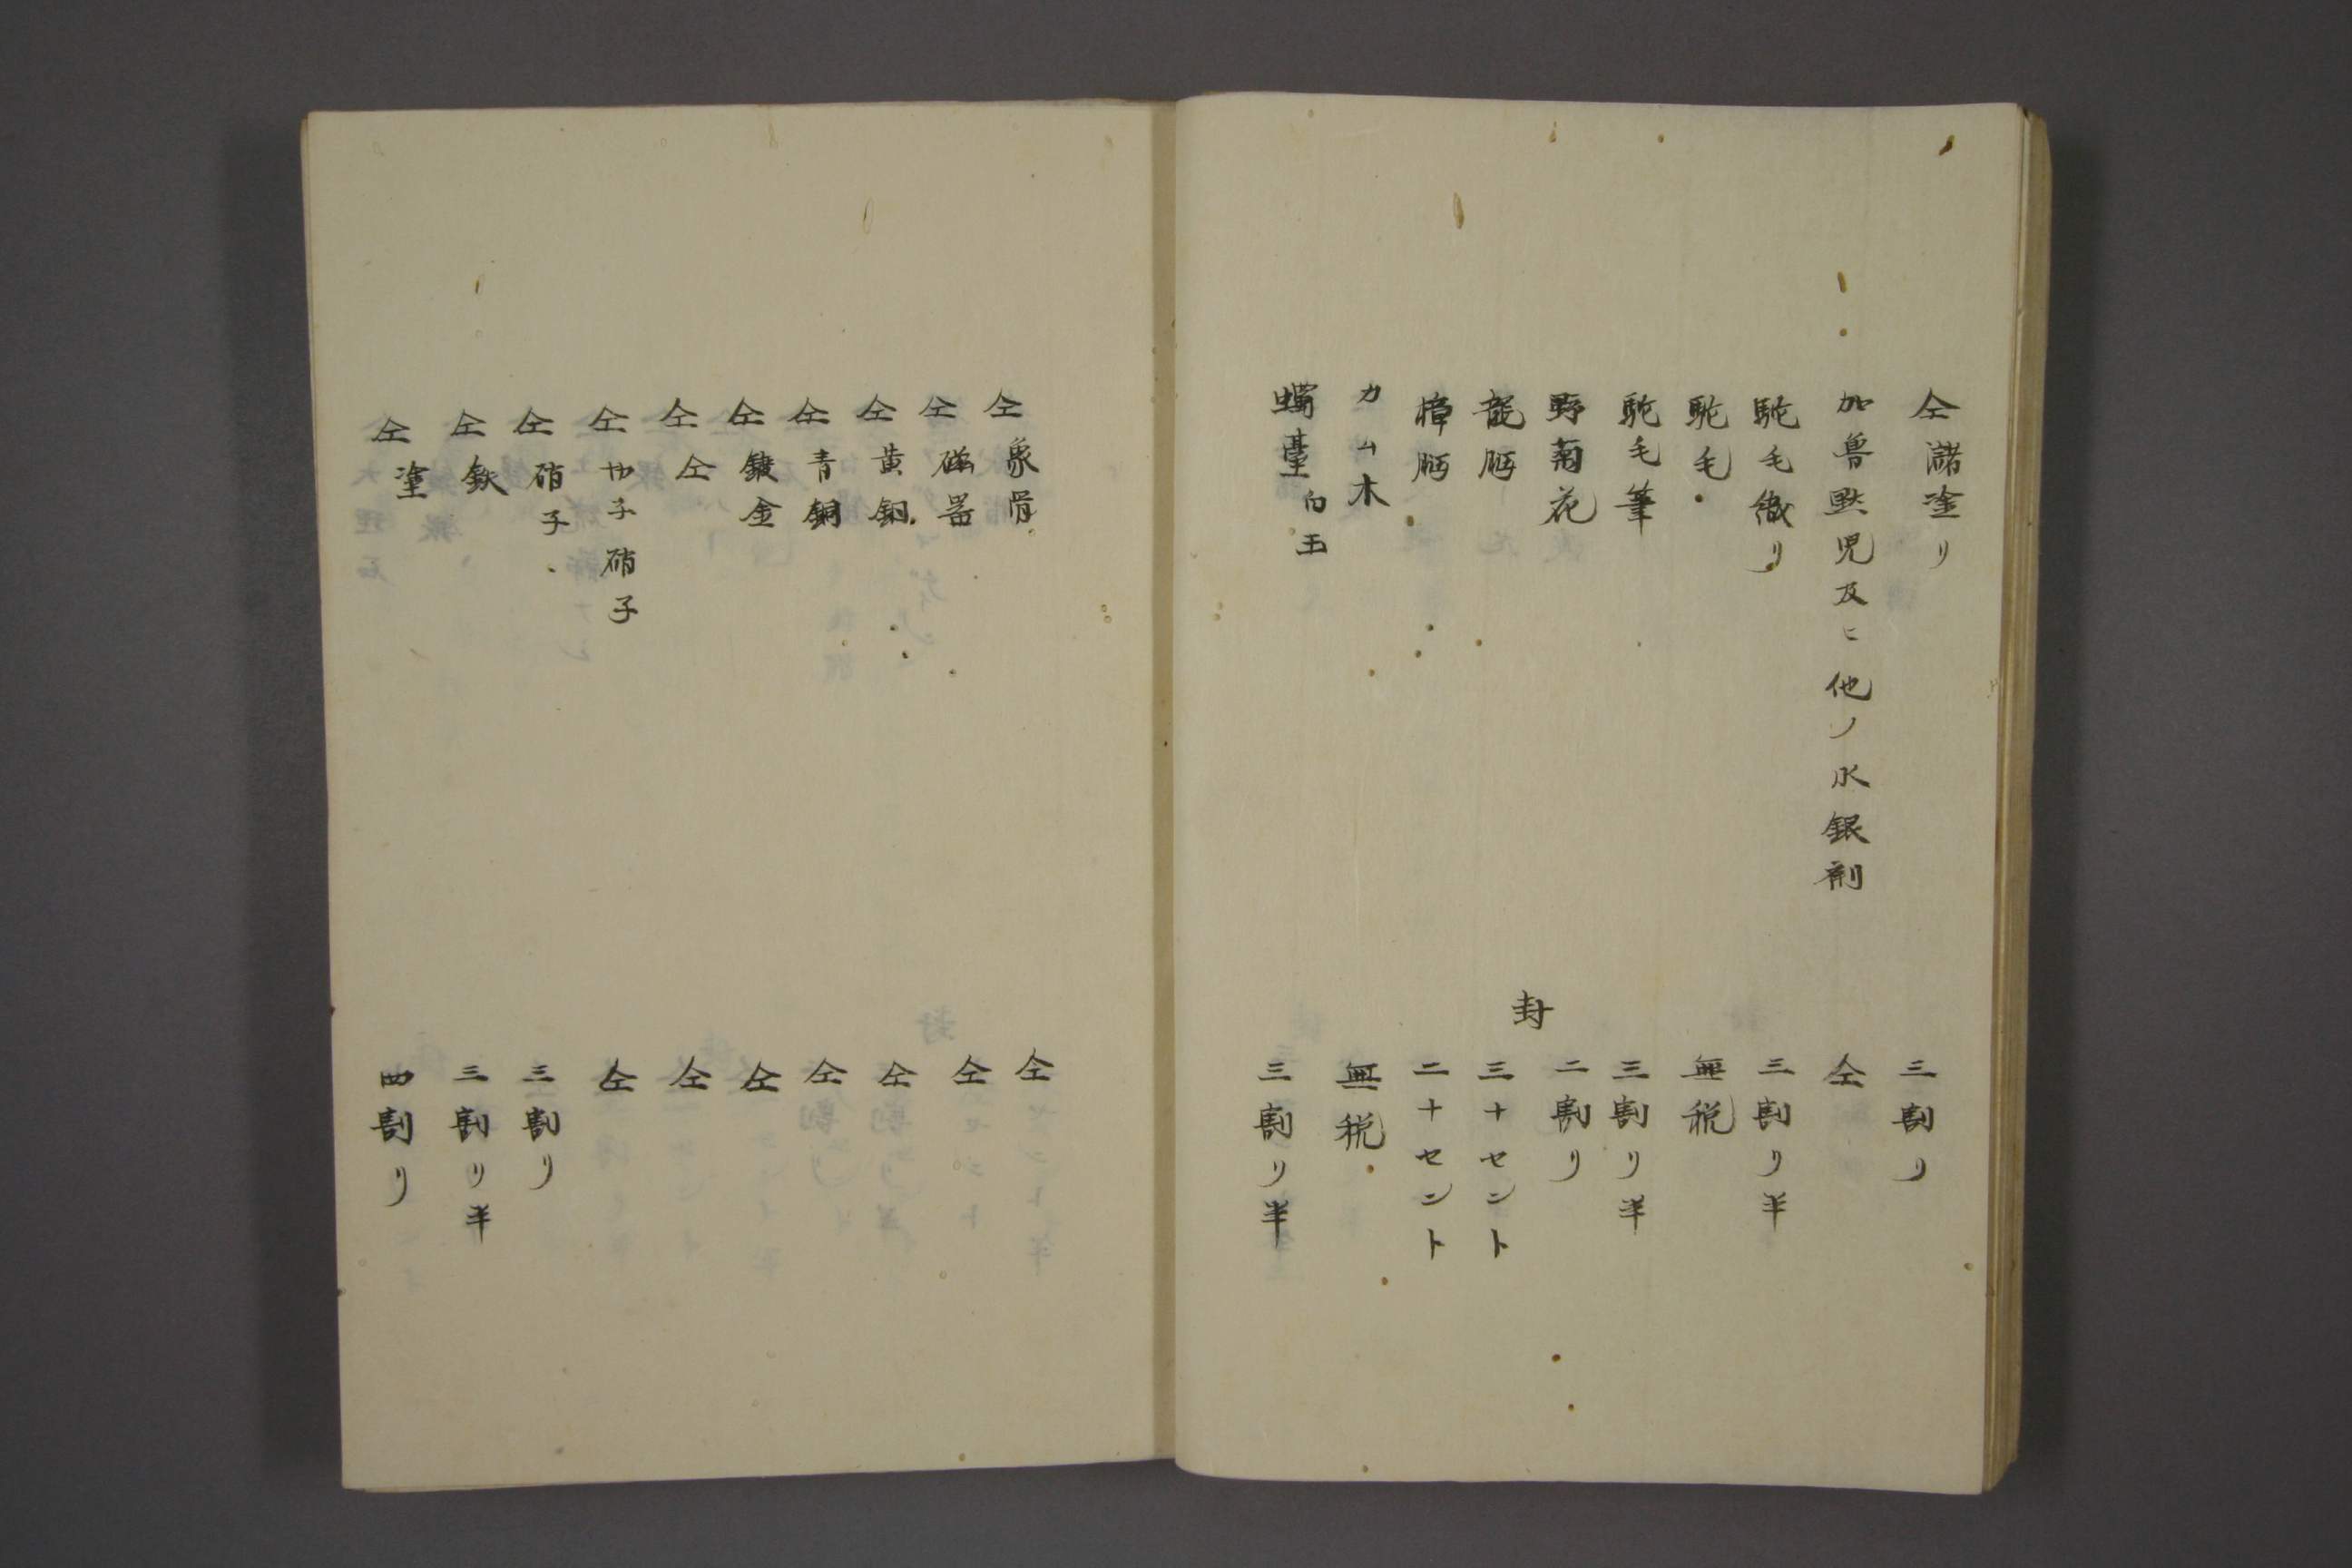 仝 塗リ 三割リ
加魯黙児及ヒ他ノ水銀剤 仝
駝毛織リ 三割リ半
駝毛 無税
駝毛筆 三割リ半
野菊花 二割リ
封
龍脳 三十セント
樟脳 二十セント
カム木 無税
蠋臺 白玉 三割リ半
仝 象骨 仝
仝 磁器 仝
仝 黄銅 仝
仝 青銅 仝
仝 鍍金 仝
仝 仝 仝
仝 切子硝子 仝
仝 硝子 三割リ
仝 鉄 三割リ半
仝 塗 四割リ